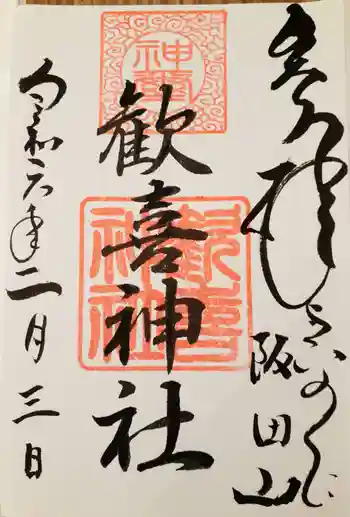 奉拝
さいのくに
阪田山
歓喜神社
神璽
歓喜
神社
令和六年二月三日